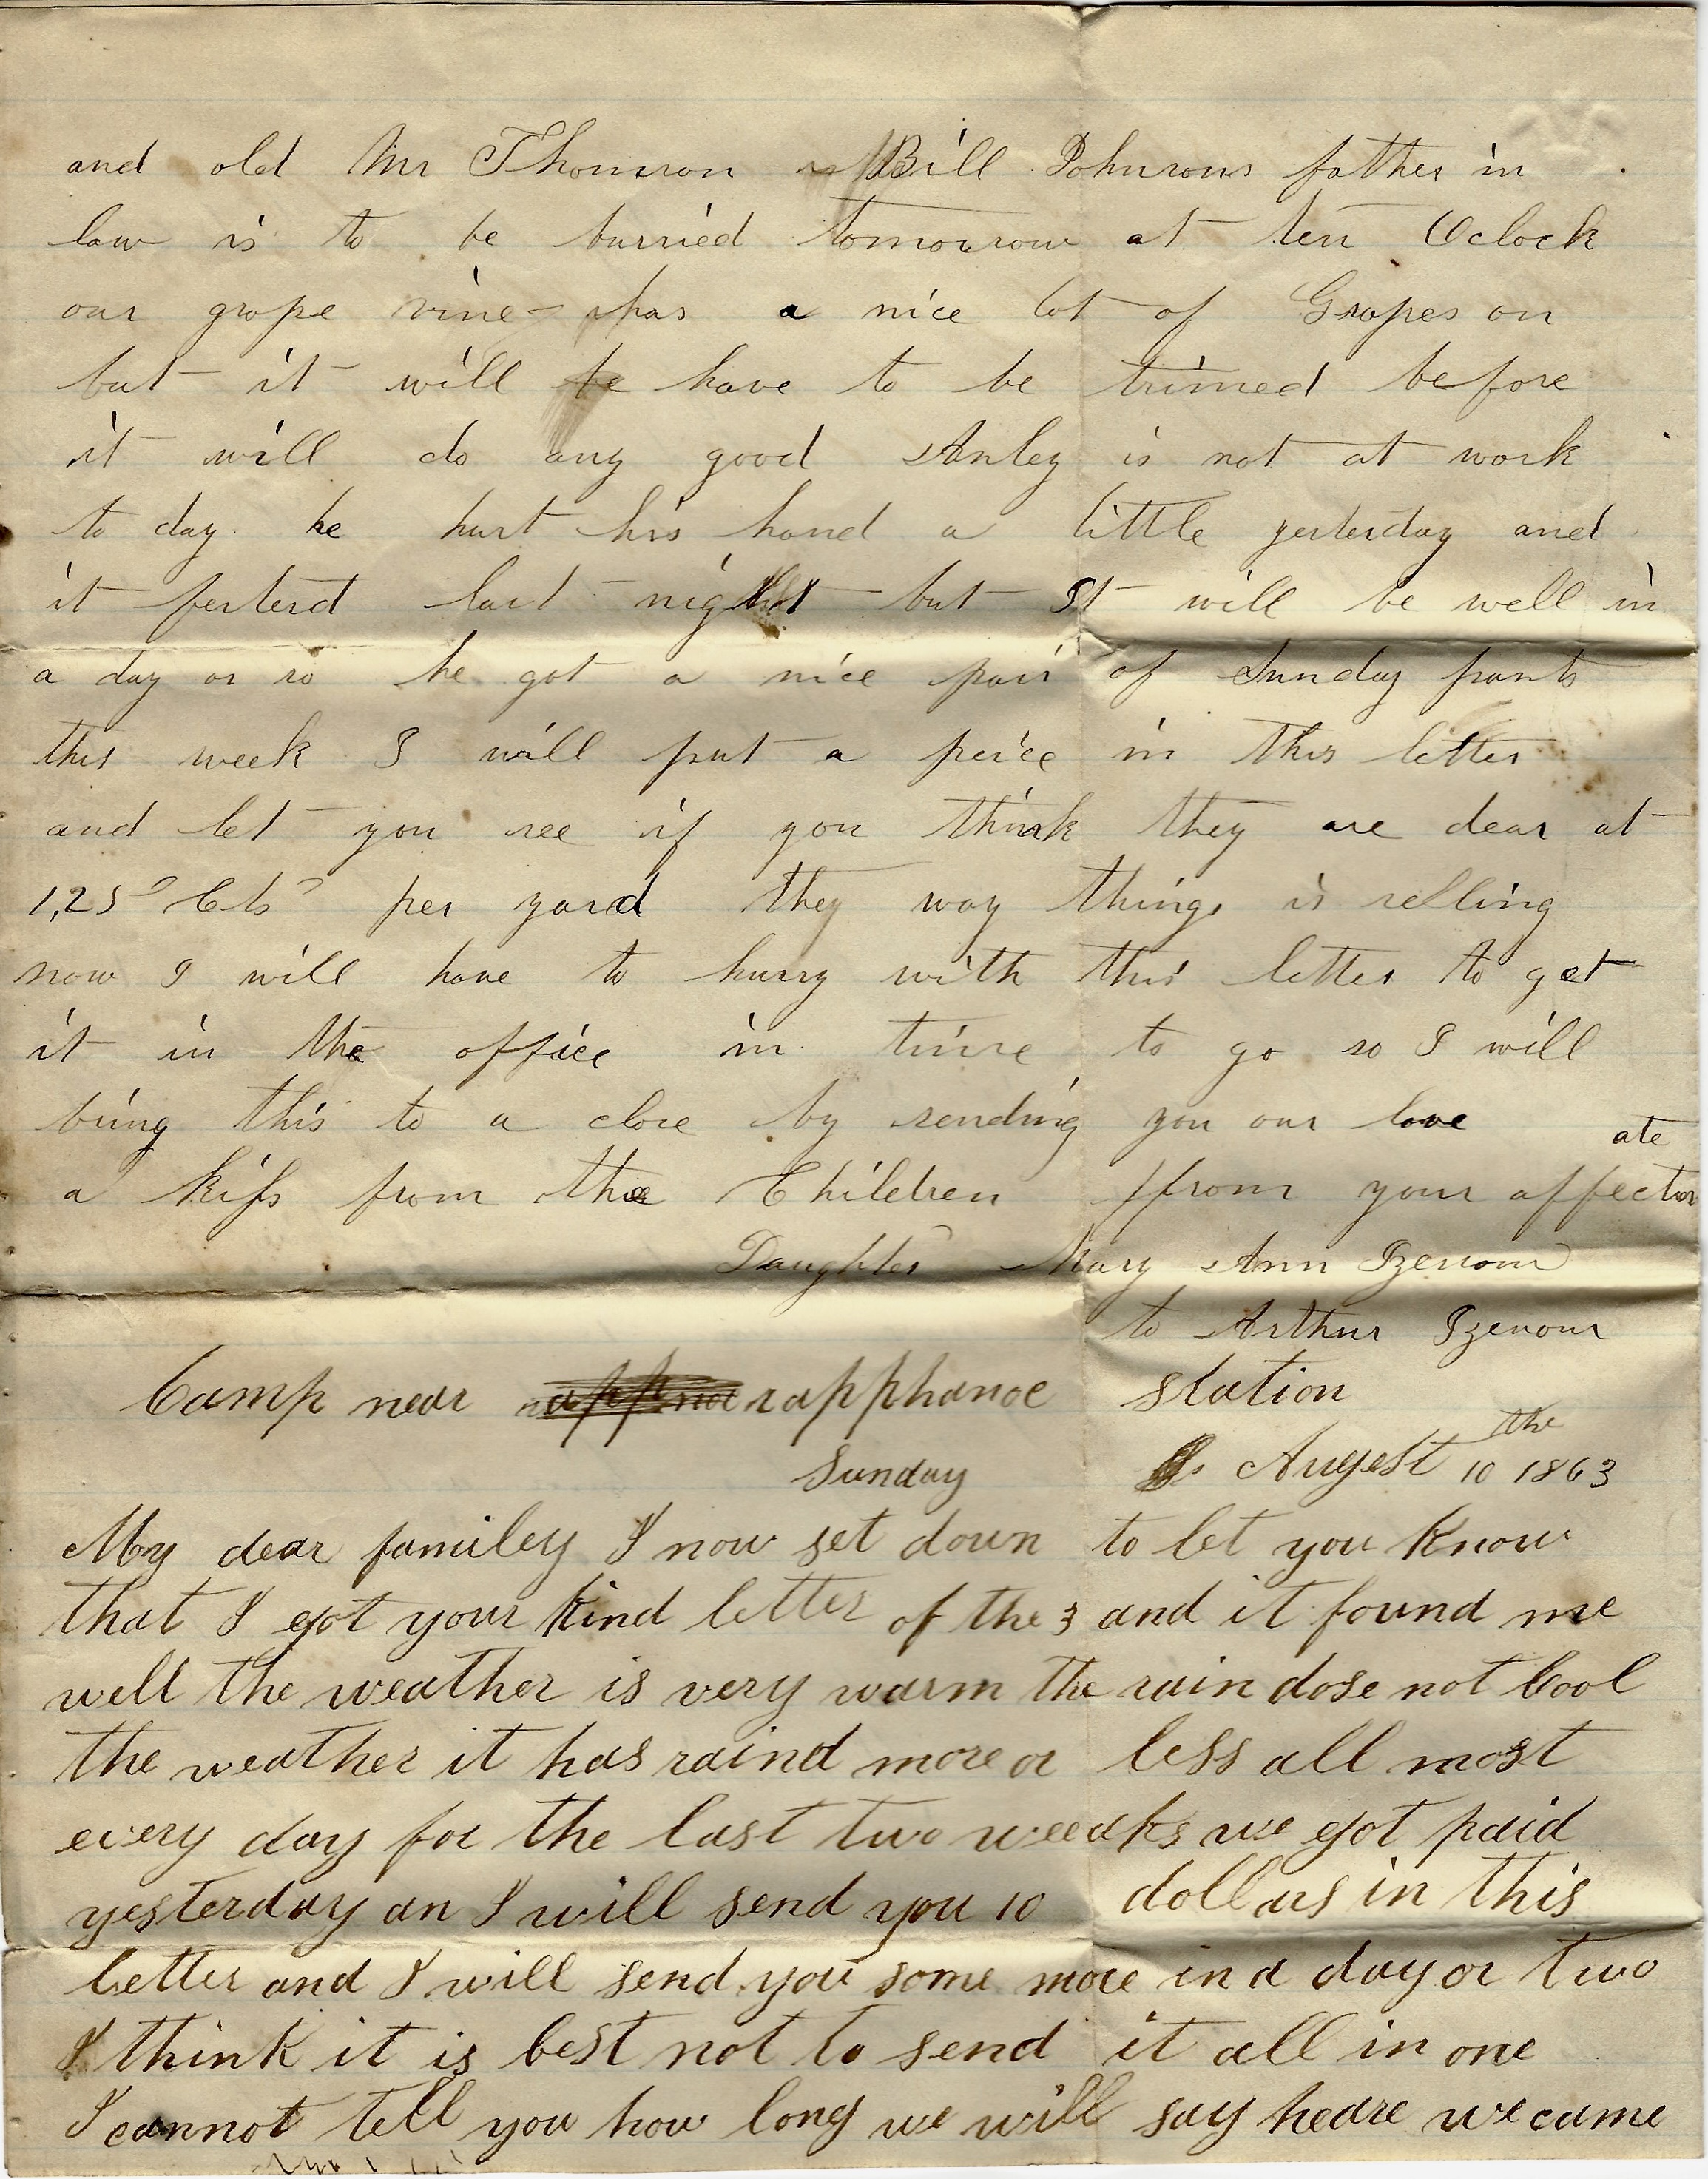 and old Mr Thomson Bill Johnsons father in
law is to be burried tomorrow at ten Oclock
our grape vine has a nice lot of Grapes on
but it will be have to be trimed before
it will do any good Anley is not at work
to day he hurt his hand a little yesterday and
it festerd last night but It will be well in
a day or so he got a nice pair of Sunday pants
this week I will put a peice in this letter
and let you see if you think they are dear at
1,25 Cts per yard they way things is selling
now I will have to hurry with this letter to get
it in the office in time to go so I will
bring this to a close by sending you our love
a kiss from the Children from your affectionate
Daughter Mary Ann Izenour
to Arthur Izenour
Camp near rapphanoe station
Sunday Augest 10 the 1863
My dear familey I now set down to let you Know
that I got your kind letter of the 3 and it found me
well the weather is very warm the rain dose not Cool
the weather it has raind more or less all most
every day for the last two weeaks we got paid
yesterday an I will send you 10 dollars in this
letter and I will send you some more in a day or two
I think it is best not to send it all in one
I cannot tell you how long we will say heare we came